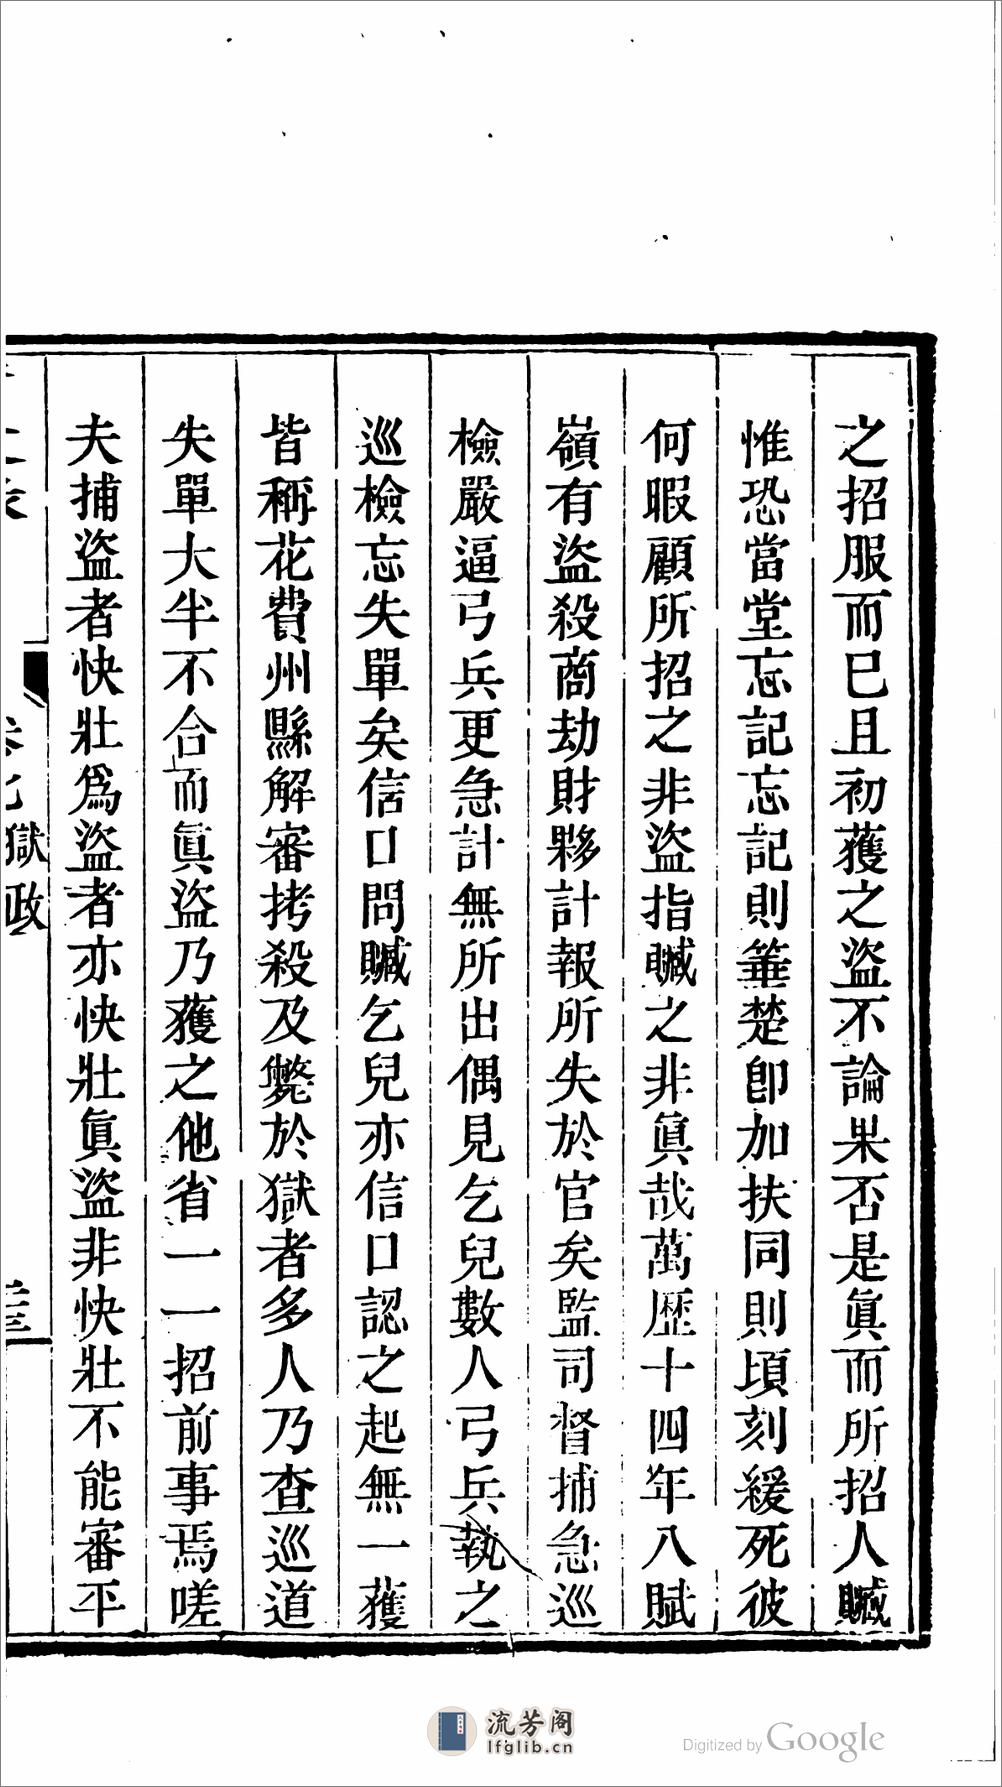 之招服而已且初獲之盜不論果否是眞而所招人贓
惟恐當堂忘記忘記則箠楚卽加扶同則頃刻緩死彼
何暇顧所招之非盜指贓之非眞哉萬歷十四年八賦
嶺有盜殺商劫財夥計報所失於官矣監司督捕急巡
檢嚴逼弓兵更急計無所出偶見乞兒數人弓兵執之
巡檢忘失單矣信口問贓乞兒亦信口認之起無一獲
皆稱花費州縣解審拷殺及斃於獄者多人乃查巡道
失單大半不合而眞盜乃獲之他省一一招前事焉嗟
夫捕盜者快壯爲盜者亦快壯眞盜非快壯不能審平
獄政
流芳阁
lfglib.cn
Digitized by Google